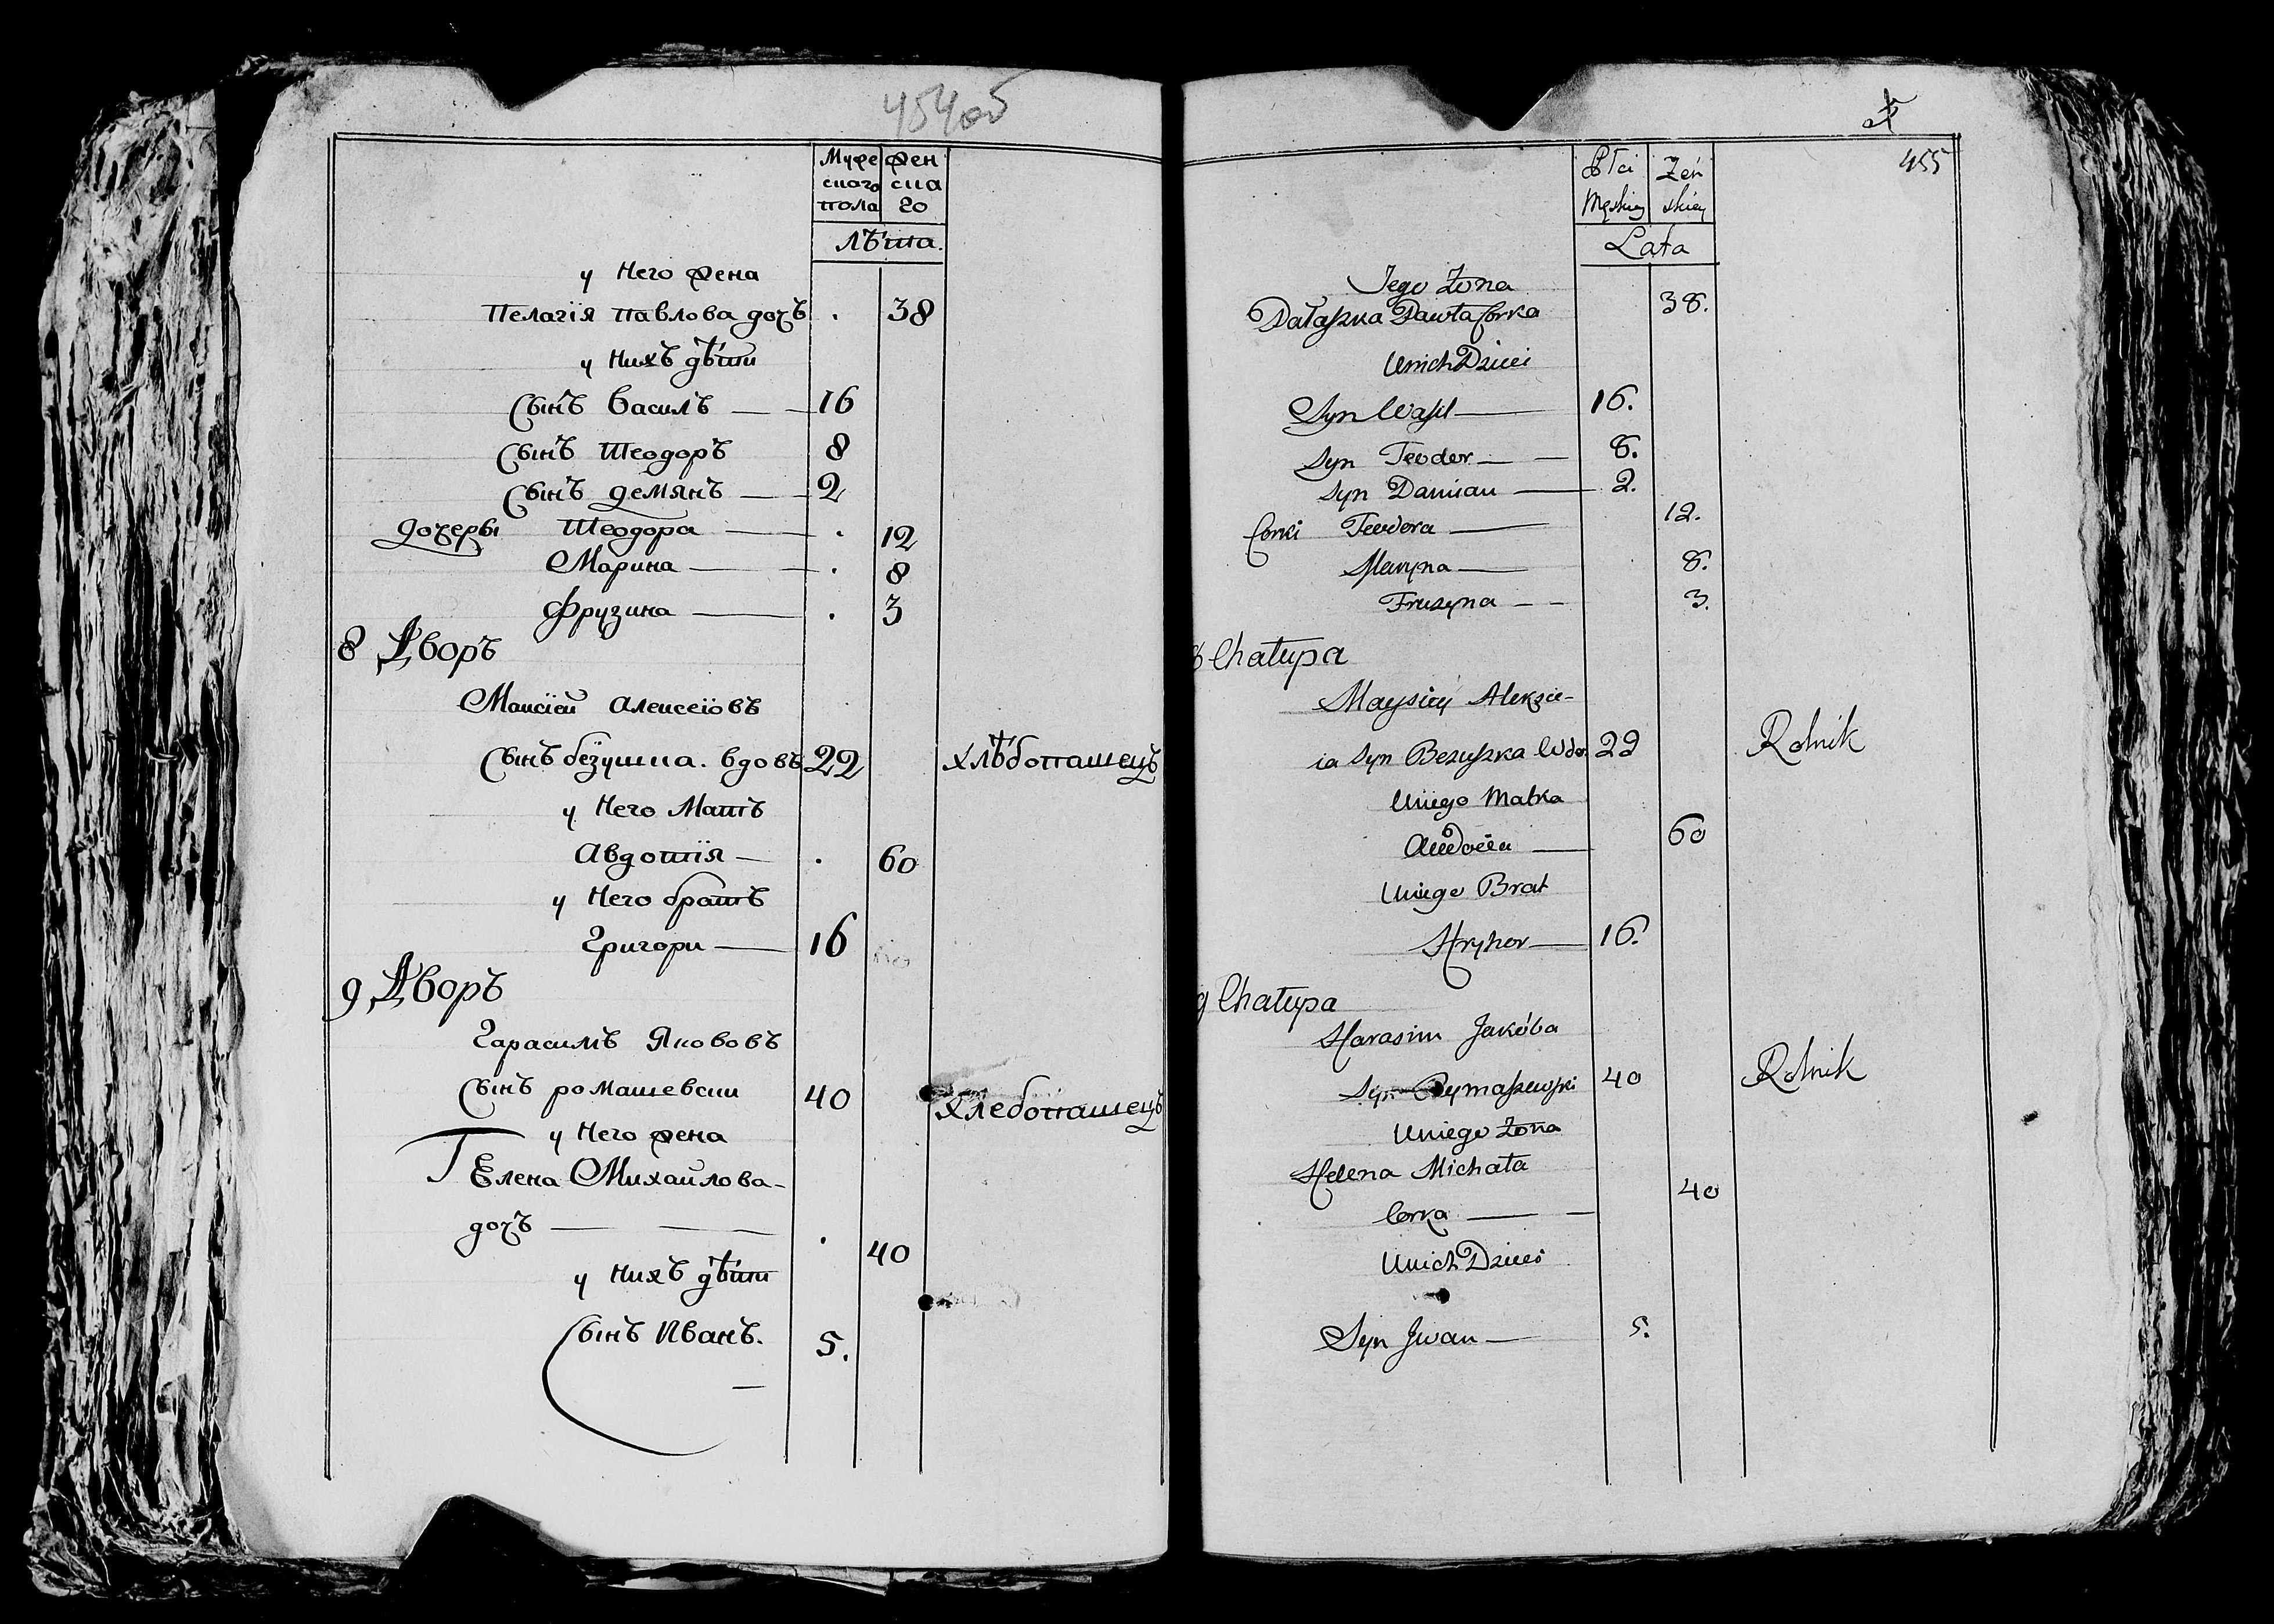 454об
Муже Жен
скаго ска
пола го
лѣта.
у Него жена
Пелагія Павлова дочъ . 38
у Нихъ дѣти
Сынъ Василъ — 16
Сынъ Теодоръ 8
Сынъ Демянъ — 2
Дочеры Теодора — . 12
Марина — . 8
Фрузина — . 3
8 Дворъ
Моисіей Алексеіовъ
Сынъ безушка. вдовъ 22 хлѣбопашецъ
у Него Матъ
Авдотія — . 60
у Него братъ
Григори — 16
9 Дворъ
Гарасимъ Яковъвъ
Сынъ ромашевски 40 хлебопашецъ
у Него жена
Елена Михайлова-
дочъ — — . 40
у Нихъ дѣти
Сынъ Иванъ. 5.
455
Płci Żeń
Męskiey skiey
Lata
Jego Żona
Pałaszka Pawła Corka 38.
U nich Dzieci
Syn Wasil — 16.
Syn Teodor — 8.
Syn Damian — 2.
Corki Teodora — 12.
Maryna — 8.
Fruzyna — 3.
8 Chałupa
Maysiey Alekzie-
ia Syn Bezuszka Wdo. 22 Rolnik
U niego Matka
Awdocia — 60
U niego Brat
Hryhor — 16.
9 Chałupa
Harasim Jakóba
Syn Rymaszewski 40 Rolnik
U niego Żona
Helena Michała
Corka — 40
U nich Dzieci
Syn Jwan — 5.